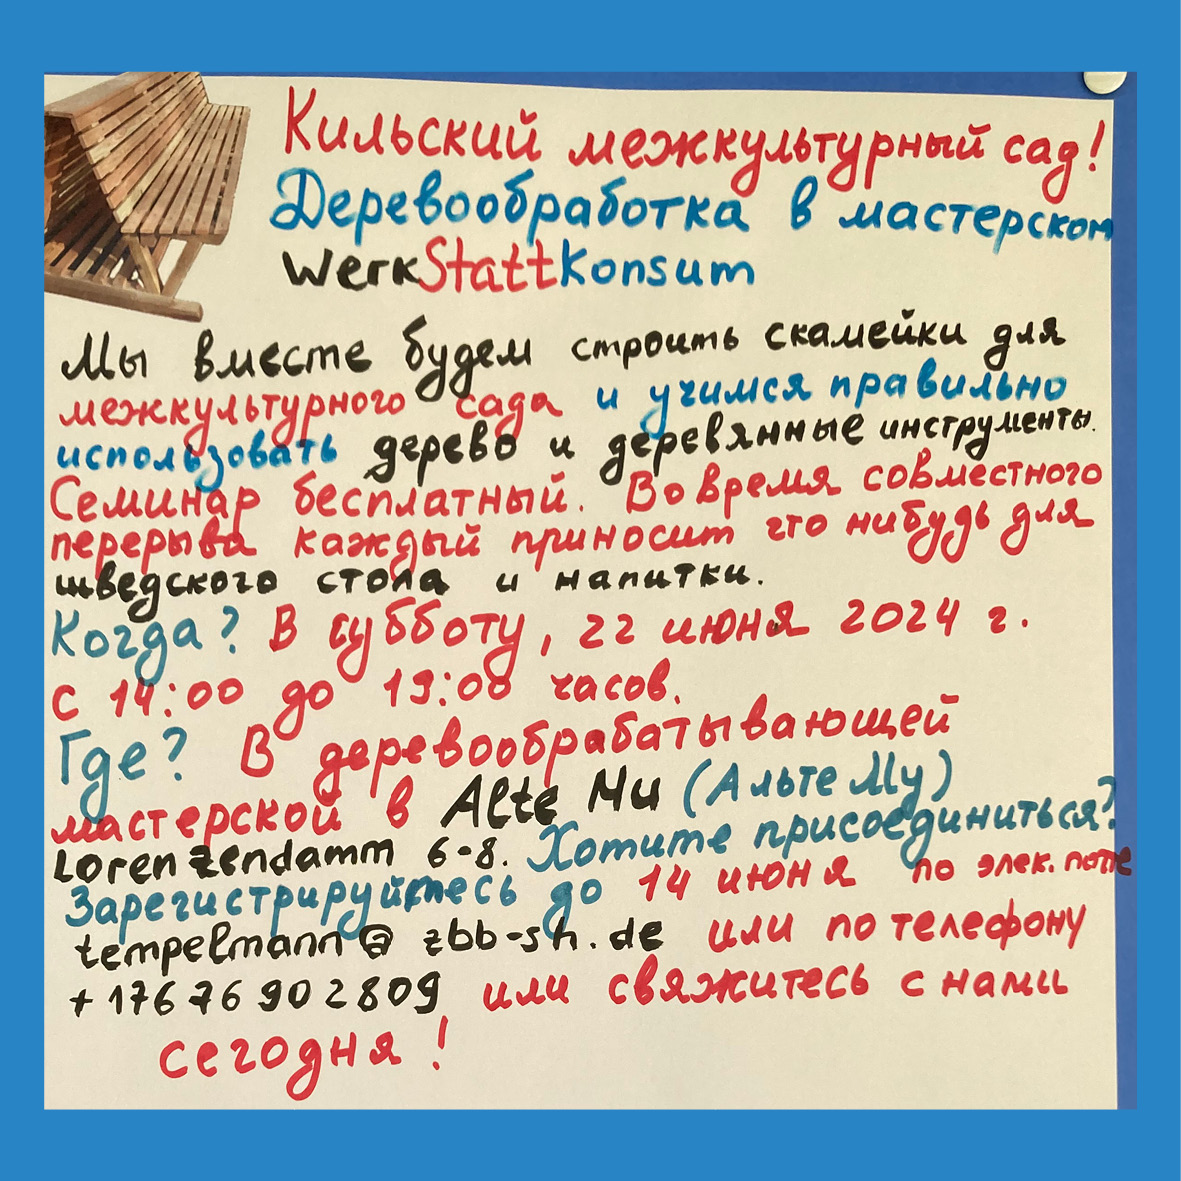 Кильский межкультурный сад!
Деревообработка в мастерском
WerkStattKonsum
Мы вместе будем строить скамейки для
межкультурного сада и учимся правильно
использовать дерево и деревянные инструменты.
Семинар бесплатный. Во время совместного
перерыва каждый приносит что нибудь для
шведского стола и напитки.
Когда? В субботу, 22 июня 2024 г.
с 14:00 до 19:00 часов.
Где? В деревообрабатывающей
мастерской в Alte Mu (Альте Му)
Lorenzendamm 6-8. Хотите присоединиться?
Зарегистрируйтесь до 14 июня по элек. почте
tempelmann@zbb-sh.de или по телефону
+176 76 90 2809 или свяжитесь с нами
сегодня!